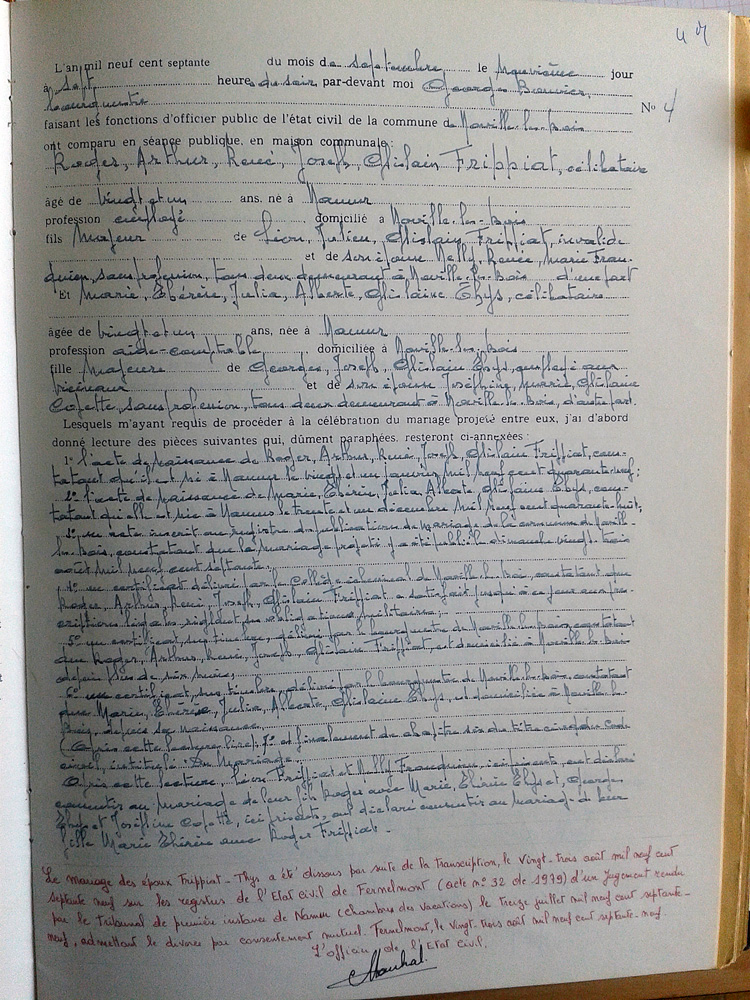 47
L'an mil neuf cent septante du mois de septembre le neuvième jour
à sept heures du soir par-devant moi Georges Bouvier,
bourgmestre
No 4
faisant les fonctions d'officier public de l'état civil de la commune de Noville-les-bois
ont comparu en séance publique, en maison communale :
Roger, Arthur, René, Joseph, Ghislain Frippiat, célibataire
âgé de vingt et un ans, né à Namur
profession employé domicilié à Noville-les-bois
fils majeur de Léon, Julien, Ghislain Frippiat, invalide
et de son épouse Nelly, Renée, Marie Fran-
quien, sans profession, tous deux demeurant à Noville-les-bois d'une part
Et Marie, Thérèse, Julia, Alberte, Ghislaine Thys, célibataire
âgée de vingt et un ans, née à Namur
profession aide-comptable domiciliée à Noville-les-bois
fille majeure de Georges, Joseph, Ghislain Thys, employé aux
vicinaux et de son épouse Joséphine, Marie, Ghislaine
Copette, sans profession, tous deux demeurant à Noville-les-bois, d'autre part.
Lesquels m'ayant requis de procéder à la célébration du mariage projeté entre eux, j'ai d'abord
donné lecture des pièces suivantes qui, dûment paraphées, resteront ci-annexées :
1° l'acte de naissance de Roger, Arthur, René, Joseph, Ghislain Frippiat, cons-
tatant qu'il est né à Namur le vingt et un janvier mil neuf cent quarante-neuf ;
2° l'acte de naissance de Marie, Thérèse, Julia, Alberte, Ghislaine Thys, cons-
tatant qu'elle est née à Namur le trente et un décembre mil neuf cent quarante-huit ;
3° un acte inscrit au registre de publications de mariage de la commune de Noville-
les-bois, constatant que le mariage projeté y a été publié dimanche vingt-trois
août mil neuf cent septante.
4° un certificat délivré par le Collège échevinal de Noville-les-bois, constatant que
Roger, Arthur, René, Joseph, Ghislain Frippiat a satisfait jusqu'à ce jour aux pres-
criptions légales réglant ses obligations militaires ;
5° un certificat, sur timbre, délivré par le bourgmestre de Noville-les-bois, constatant
que Roger, Arthur, René, Joseph, Ghislain Frippiat, est domicilié à Noville-les-bois
depuis plus de six mois ;
6° un certificat, sur timbre, délivré par le bourgmestre de Noville-les-bois, constatant
que Marie, Thérèse, Julia, Alberte, Ghislaine Thys, est domiciliée à Noville-les-
bois, depuis sa naissance.
(Après cette lecture) 7° et finalement du chapitre six du titre cinq du Code
civil, intitulé : Du Mariage.
Après cette lecture, Léon Frippiat et Nelly Franquien, ici présents, ont déclaré
consentir au mariage de leur fils Roger avec Marie, Thérèse Thys et, Georges
Thys et Joséphine Copette, ici présents, ont déclaré consentir au mariage de leur
fille Marie Thérèse avec Roger Frippiat.
Le mariage des époux Frippiat - Thys a été dissous par suite de la transcription, le vingt-trois août mil neuf cent
septante neuf sur les registres de l'Etat civil de Fernelmont (acte n° 32 de 1979) d'un jugement rendu
par le Tribunal de première instance de Namur (chambre des vacations) le treize juillet mil neuf cent septante-
neuf, admettant le divorce par consentement mutuel. Fernelmont, le vingt-trois août mil neuf cent septante-neuf
L'officier de l'Etat civil.